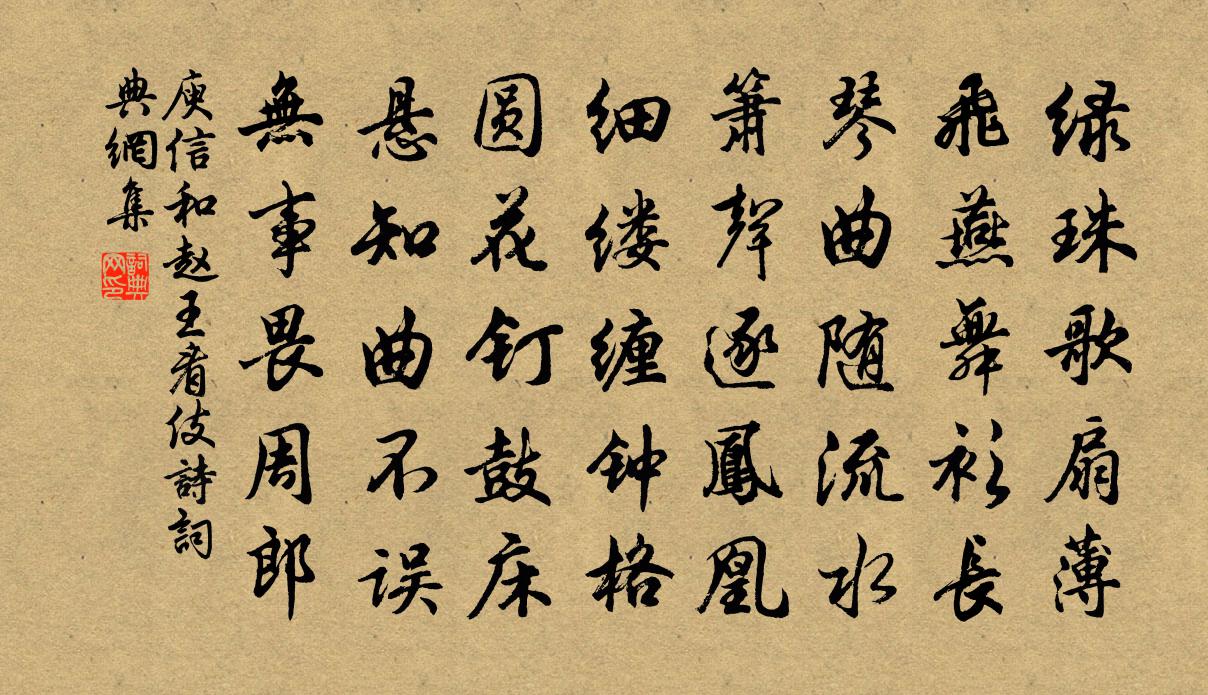 绿珠歌扇薄
飛燕舞衫長
琴曲随流水
簫聲逐鳳凰
细缕缠钟格
圆花钉鼓床
悬知曲不误
無事畏周郎
庾信和赵王看伎詩詞
典網集
詞典网印